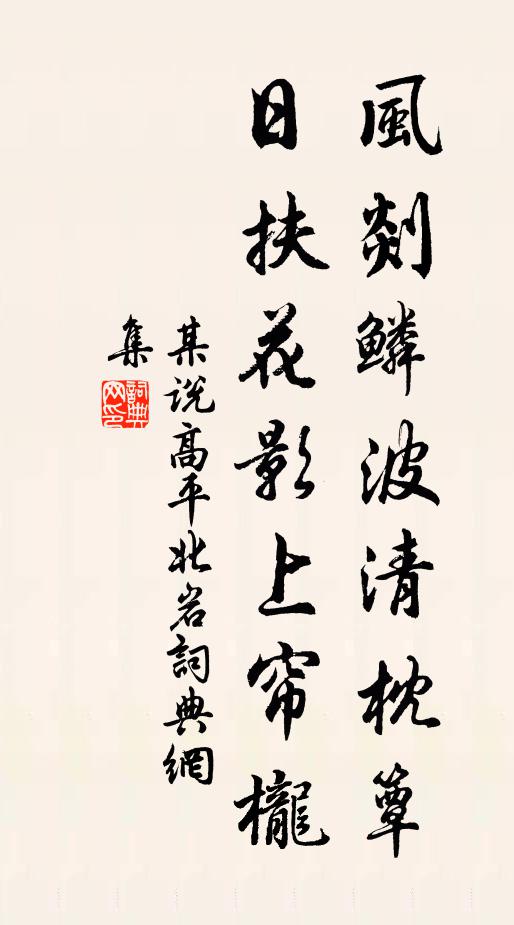 風剡鱗波清枕簟
日扶花影上帘櫳
某説高平北岩詞典網
集
詞典網印